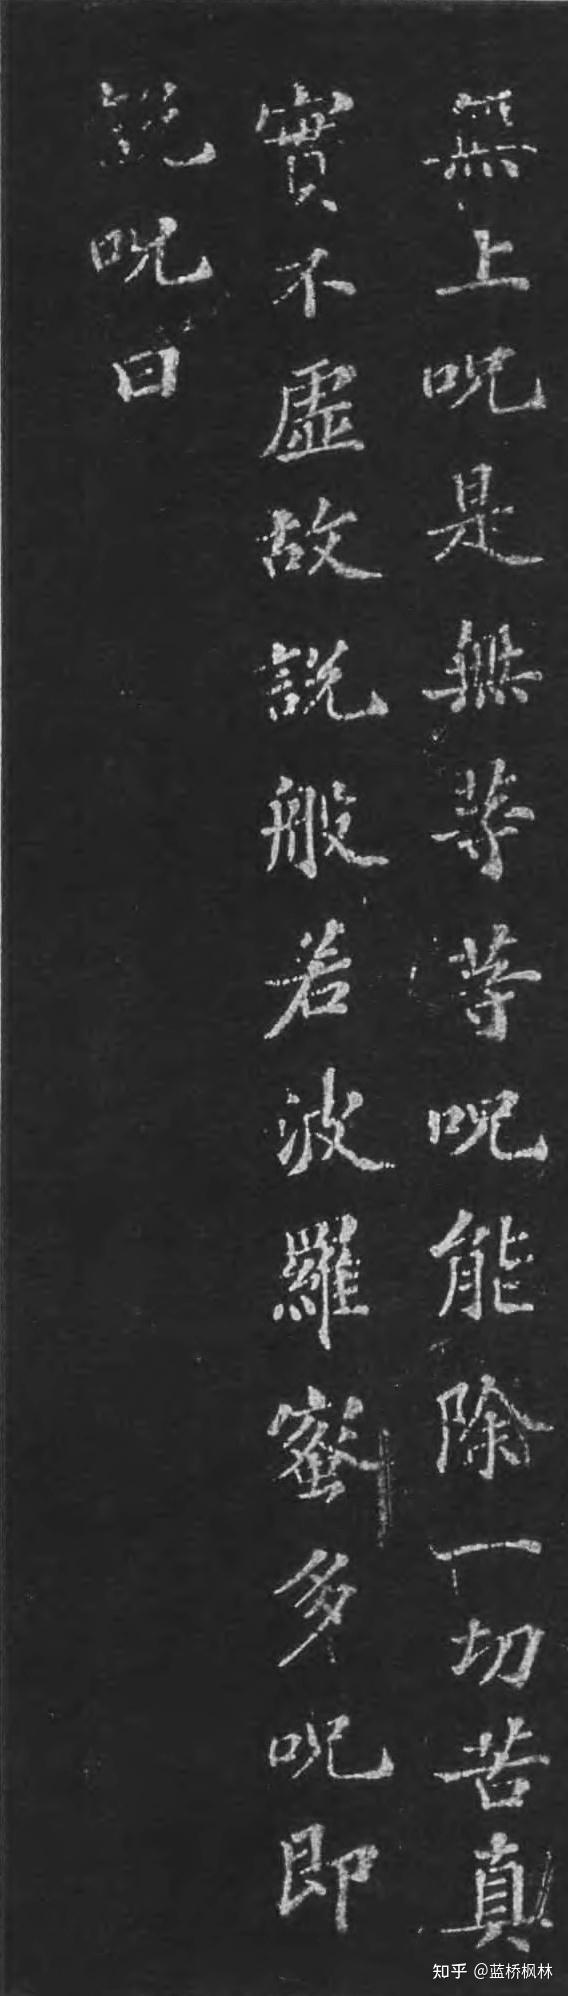 無上呪是無等等呪能除一切苦真
實不虛故説般若波羅蜜多呪即
説呪曰
知乎 @蓝桥枫林